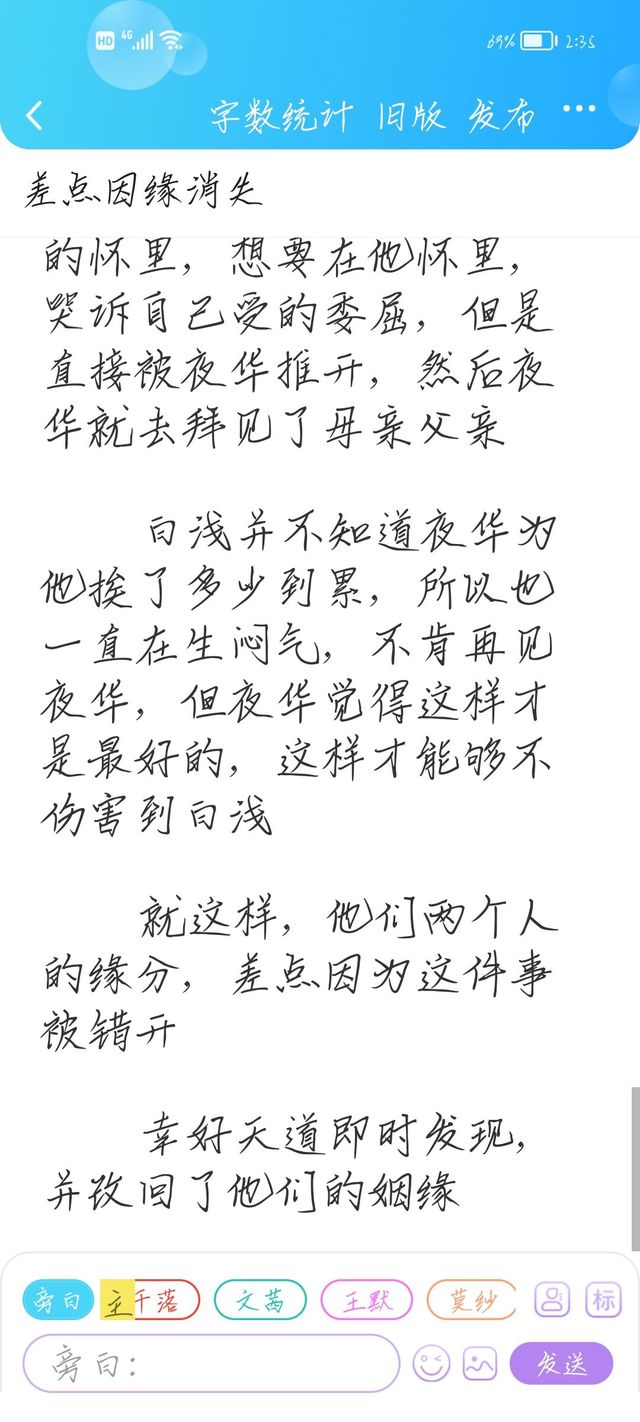 HD 4G 69% 2:35
字数统计 旧版 发布
差点因缘消失
的怀里，想要在他怀里，
哭诉自己受的委屈，但是
直接被夜华推开，然后夜
华就去拜见了母亲父亲
白浅并不知道夜华为
他挨了多少到累，所以也
一直在生闷气，不肯再见
夜华，但夜华觉得这样才
是最好的，这样才能够不
伤害到白浅
就这样，他们两个人
的缘分，差点因为这件事
被错开
幸好天道即时发现，
并改回了他们的姻缘
旁白 主 千落 文茜 王默 莫纱 标
旁白： 发送